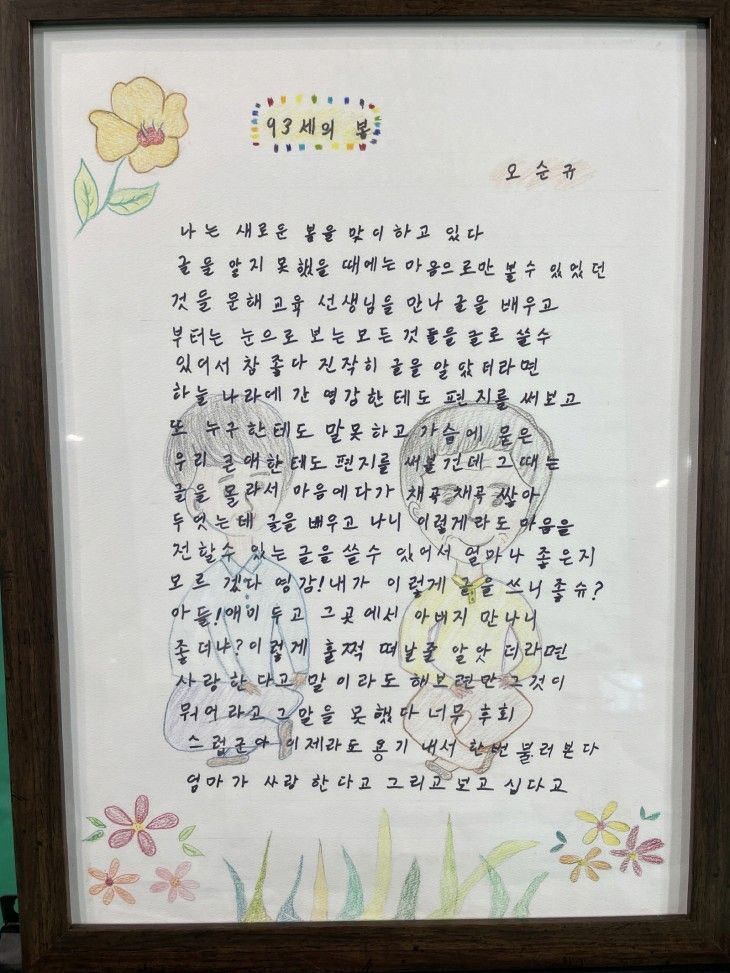 93세의 봄
오순규
나는 새로운 봄을 맞이하고 있다
글을 알지 못했을 때에는 마음으로만 볼수 있었던
것들 문해 교육 선생님을 만나 글을 배우고
부터는 눈으로 보는 모든 것들을 글로 쓸수
있어서 참 좋다 진작히 글을 알았더라면
하늘 나라에 간 영감한테도 편지를 써보고
또 누구한테도 말못하고 가슴에 묻은
우리 큰애한테도 편지를 써볼건데 그때는
글을 몰라서 마음에다가 채곡 채곡 쌓아
두엇는데 글을 배우고 나니 이렇게라도 마음을
전할수 있는 글을 쓸수 있어서 얼마나 좋은지
모르겠다 영감! 내가 이렇게 글을 쓰니 좋슈?
아들! 애미 두고 그곳에서 아버지 만나니
좋더냐? 이렇게 훌쩍 떠날줄 알앗더라면
사랑한다고 말이라도 해보련만 그것이
뭐어라고 그말을 못했다 너무 후회
스럽군아 이제라도 용기 내서 한번 불러본다
엄마가 사랑 한다고 그리고 보고 십다고